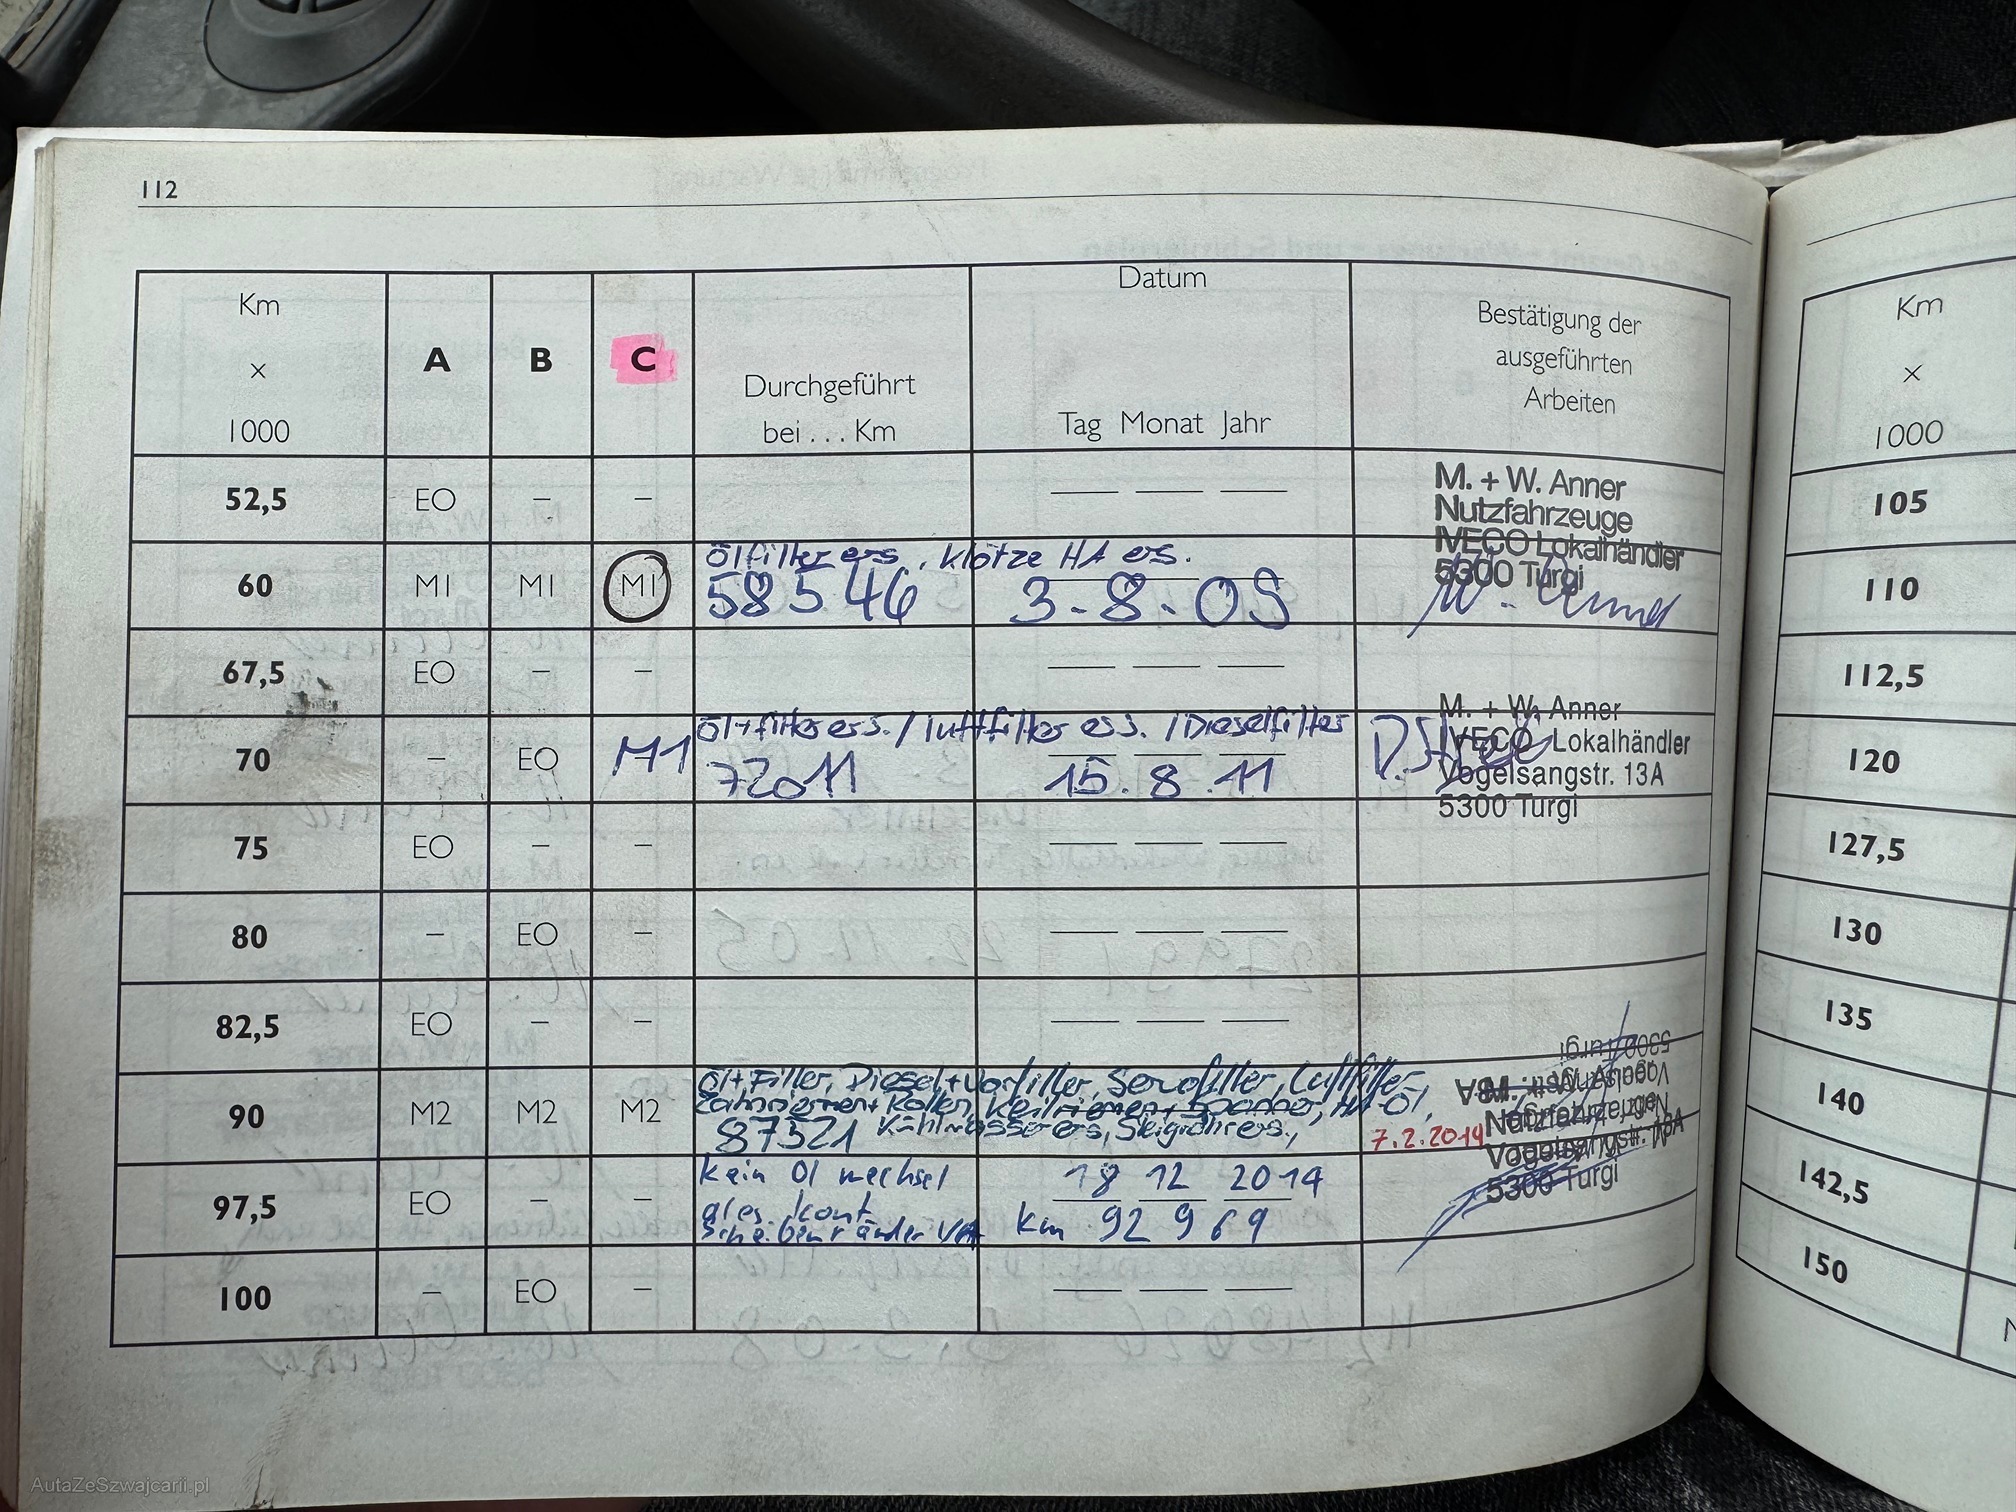 112
Km
×
1000
A
B
C
Durchgeführt
bei . . . Km
Datum
Tag Monat Jahr
Bestätigung der
ausgeführten
Arbeiten
52,5 EO – –
M. + W. Anner
Nutzfahrzeuge
IVECO Lokalhändler
5300 Turgi
60 M1 M1 M1
Ölfilter ers., Klötze HA ers.
58546 3-8-09
67,5 EO – –
70 – EO M1
Öl+filter ers. / Luftfilter ers. / Dieselfilter
72011 15.8.11
M. + W. Anner
IVECO Lokalhändler
Vogelsangstr. 13A
5300 Turgi
75 EO – –
80 – EO –
82,5 EO – –
90 M2 M2 M2
Öl+Filter, Diesel+Vorfilter, Servofilter, Luftfilter,
Zahnriemen+Rollen, Keilriemen+Spanner, HA-Öl,
87521 Kühlwasser ers.,
7.2.2014
M. + W. Anner
Nutzfahrzeuge
Vogelsangstr. 13A
5300 Turgi
97,5 EO – –
kein Öl wechsel
18 12 2014
km 92 969
100 – EO –
Km
×
1000
105
110
112,5
120
127,5
130
135
140
142,5
150
AutaZeSzwajcarii.pl